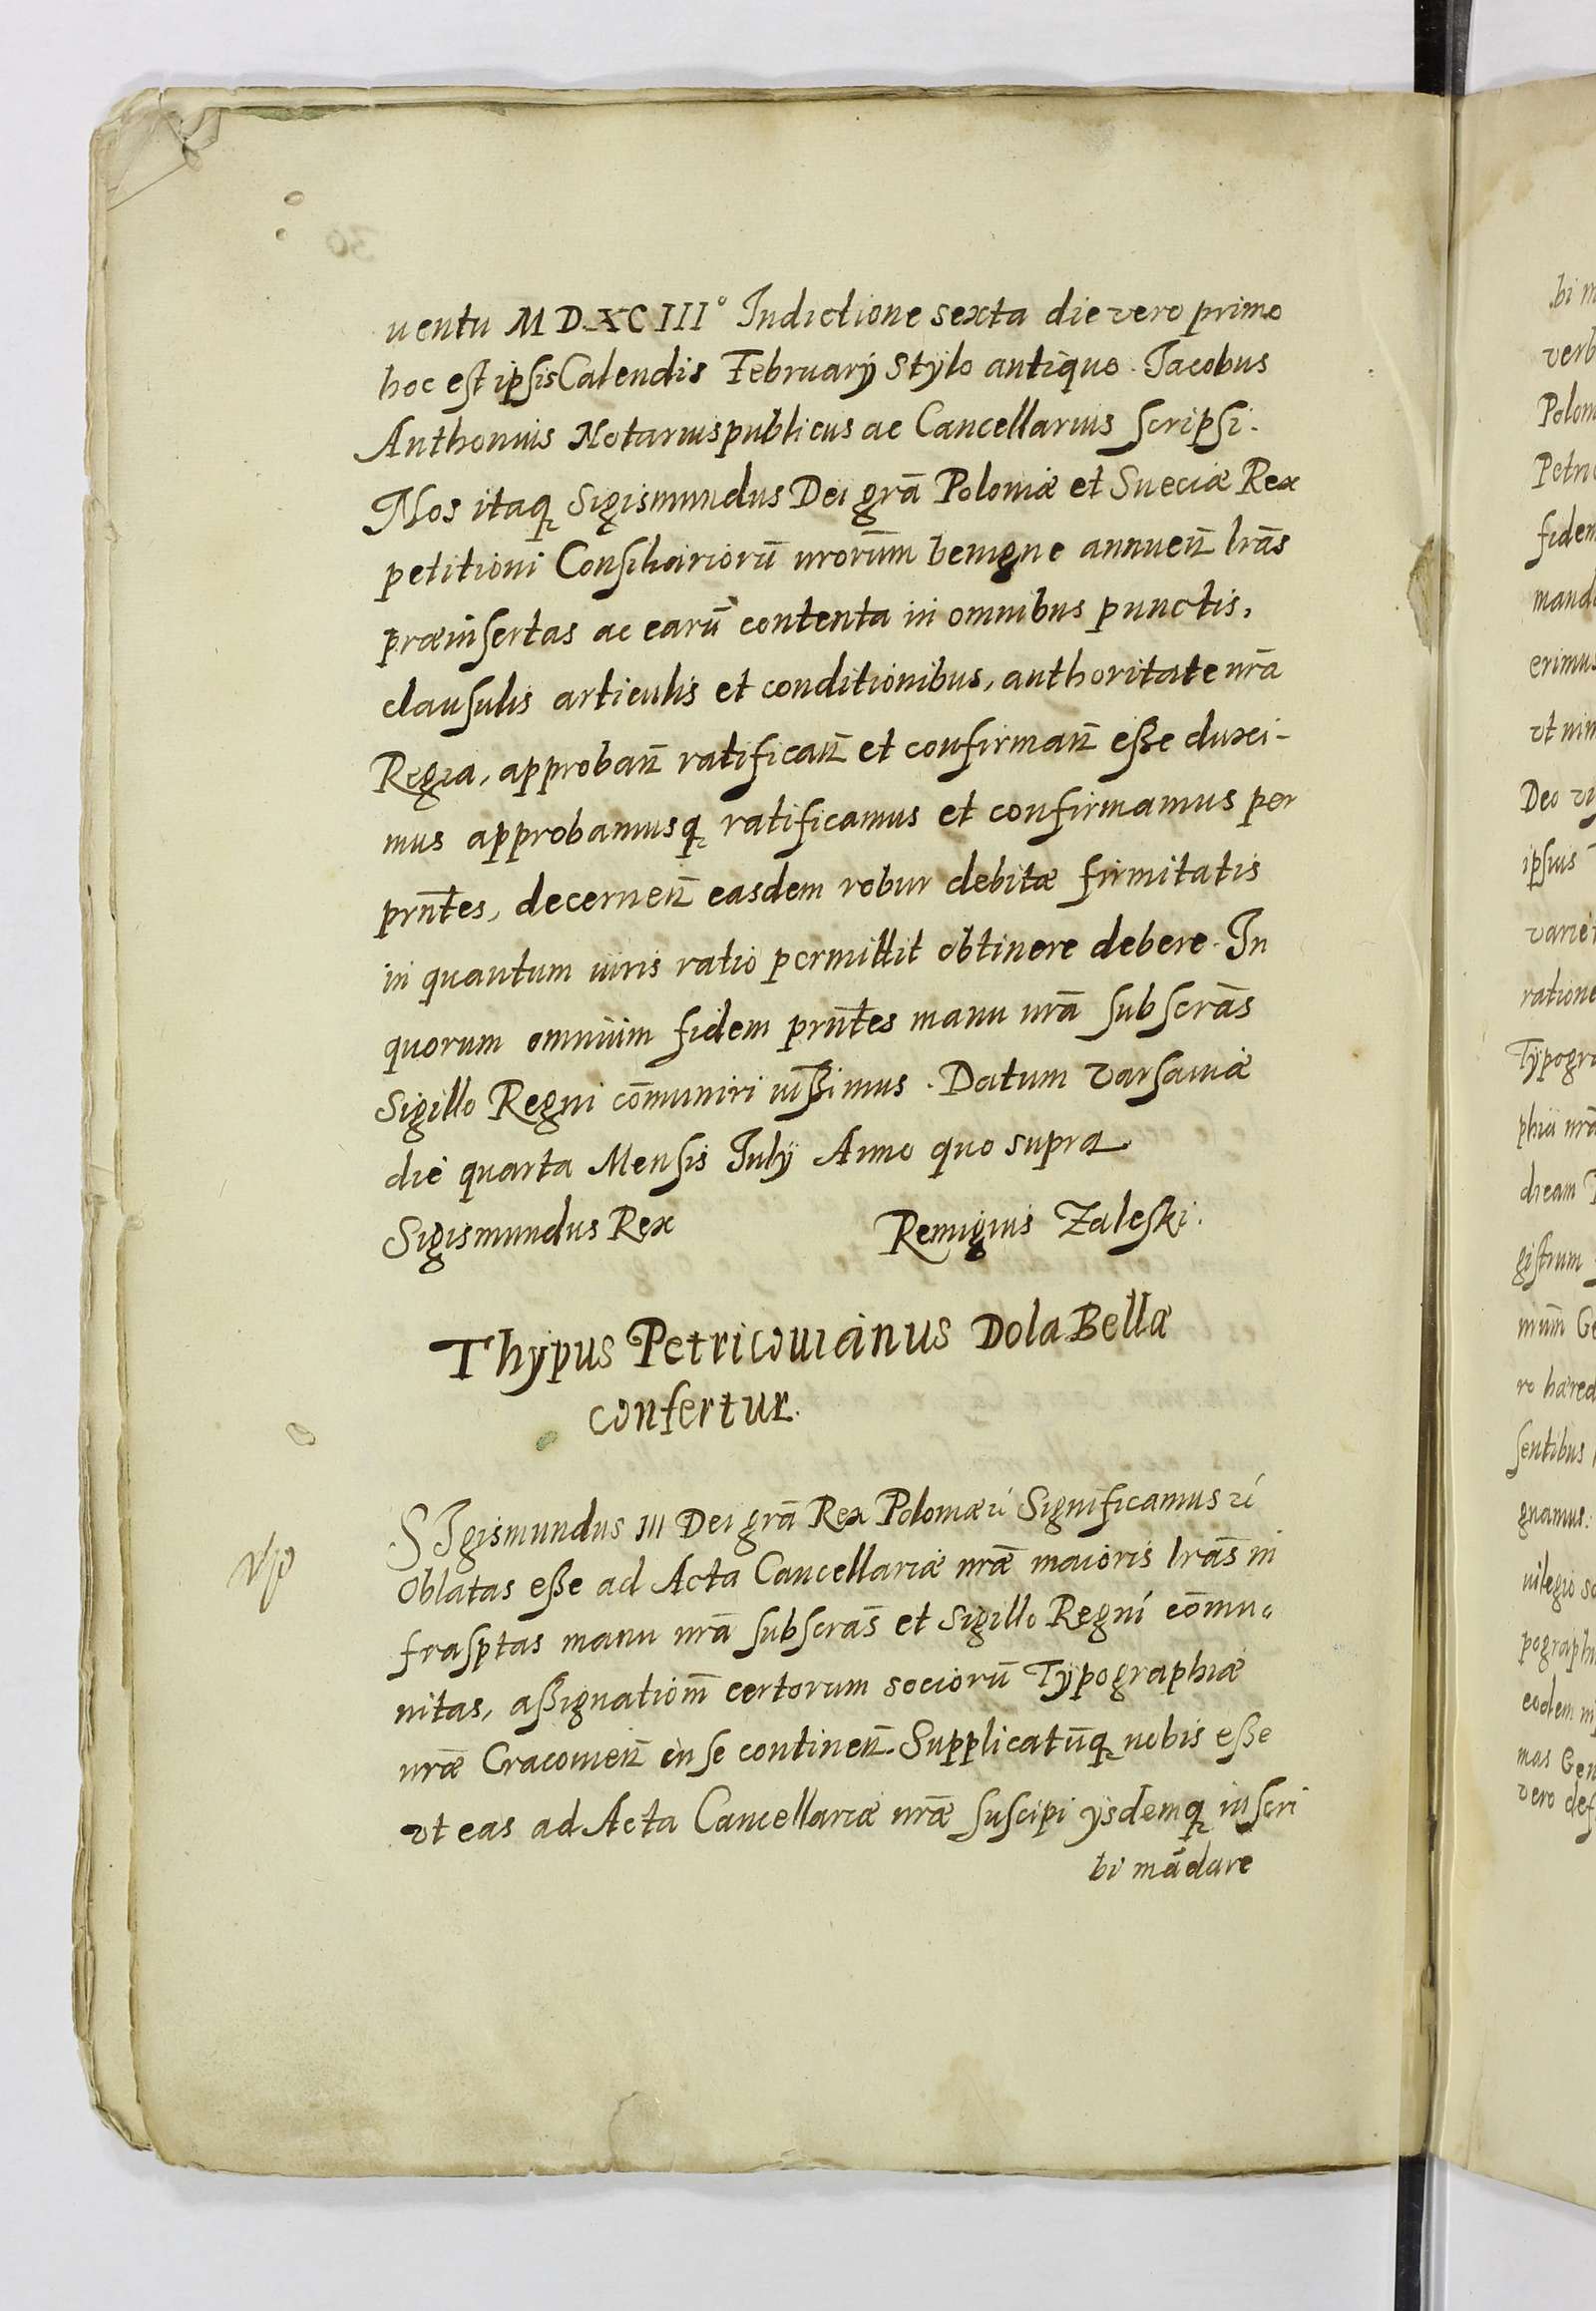 uentu MDXCIII° Indictione sexta die vero primo
hoc est ipsis Calendis Februarÿ stylo antiquo. Jacobus
Anthonius Notarius publicus ac Cancellarius scripsi.
Nos itaq Sigismundus Dei grā Poloniæ et Sueciæ Rex
petitioni Consiliariorū nrorūm benigne annueñ lrās
præinsertas ac earū contenta in omnibus punctis,
clausulis articulis et conditionibus, authoritate nrā
Regia, approbañ ratificañ et confirmañ esse duxi-
mus approbamusq ratificamus et confirmamus per
prn̄tes, decerneñ easdem robur debitæ firmitatis
in quantum iuris ratio permittit obtinere debere. In
quorum omnium fidem prn̄tes manu nrā subscrās
Sigillo Regni cōmuniri iussimus. Datum Varsauiæ
die quarta Mensis Julÿ Anno quo supra
Sigismundus Rex Remigius Zaleski.
Thypus Petricouianus DolaBellæ
confertur.
SIgismundus III Dei grā Rex Poloniæ Significamus
Oblatas esse ad Acta Cancellariæ nræ maioris lrās in
frasptas manu nrā subscrās et Sigillo Regni cōmu-
nitas, assignationm̄ certorum sociorū Typographiæ
nræ Cracouieñ in se contineñ. Supplicatūq nobis esse
vt eas ad Acta Cancellariæ nræ suscipi ÿsdemq inscri
bi mādare
30
bi m
verb
Polon
Petri
fidem
mand
erimus
vt nim
Deo
ipsius
varie
ratione
Typogra
phiæ nrā
dream
gistrum
mūm Ge
ro hæred
sentibus
gnamus.
uilegio so
pograph
eodem
mas Gen
vero def